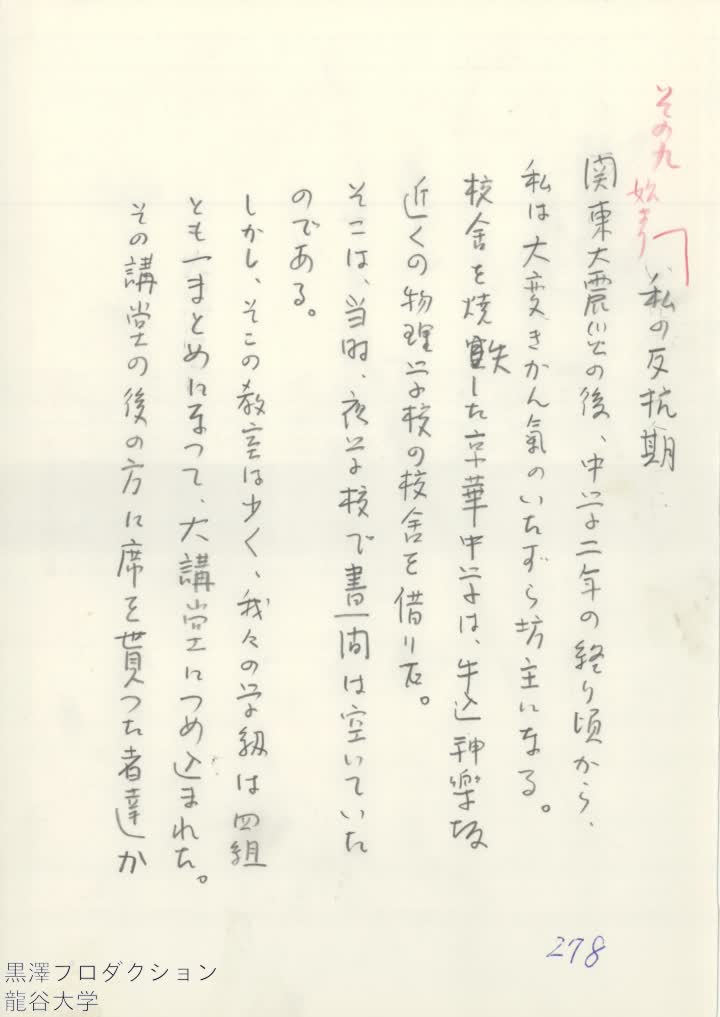 その九
始まり
私の反抗期
関東大震災の後、中学二年の終り頃から、
私は大変きかん氣のいたずら坊主になる。
校舎を焼失した京華中学は、牛込神樂坂
近くの物理学校の校舎を借りた。
そこは、当時、夜学校で晝間は空いていた
のである。
しかし、そこの教室は少く、我々の学級は四組
とも一まとめになつて、大講堂につめ込まれた。
その講堂の後の方に席を貰つた者達か
278
黒澤フロダクション
龍谷大学